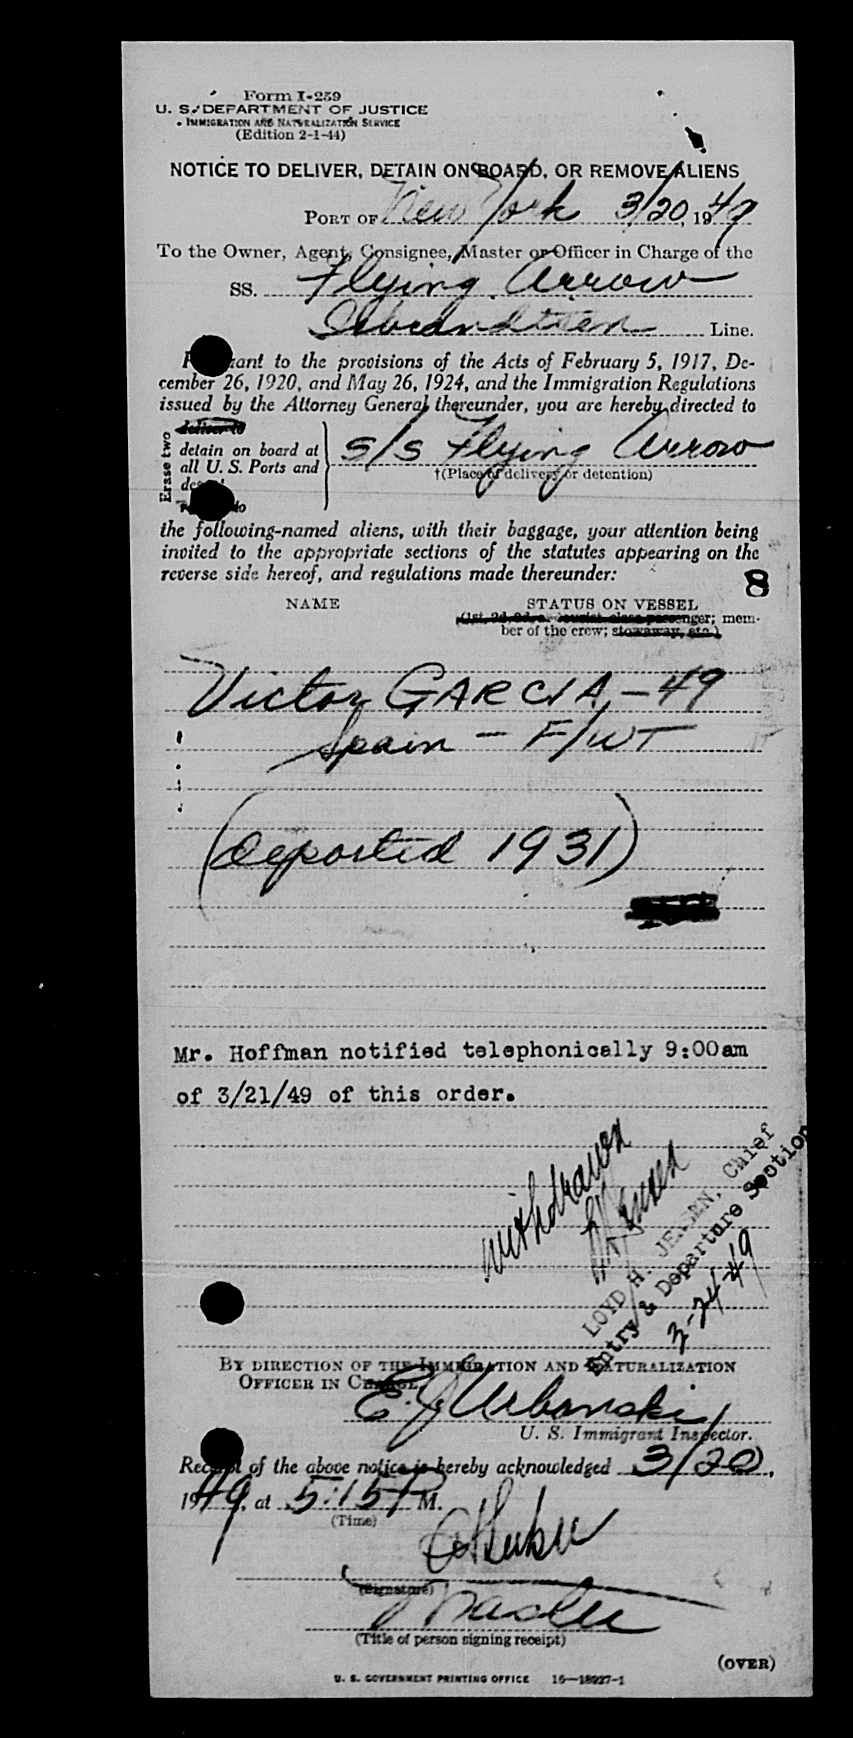 Form I-259
U. S. DEPARTMENT OF JUSTICE
IMMIGRATION AND NATURALIZATION SERVICE
(Edition 2-1-44)
NOTICE TO DELIVER, DETAIN ON BOARD, OR REMOVE ALIENS
PORT OF New York 3/20, 1949
To the Owner, Agent, Consignee, Master or Officer in Charge of the
SS. Flying Arrow
Isbrandtsen Line.
Pursuant to the provisions of the Acts of February 5, 1917, De-
cember 26, 1920, and May 26, 1924, and the Immigration Regulations
issued by the Attorney General thereunder, you are hereby directed to
Erase two
deliver to
detain on board at
all U. S. Ports and
S/S Flying Arrow
†(Place of delivery or detention)
the following-named aliens, with their baggage, your attention being
invited to the appropriate sections of the statutes appearing on the
reverse side hereof, and regulations made thereunder:
8
NAME STATUS ON VESSEL
(1st, 2d, 3d, or tourist class passenger; mem-
ber of the crew; stowaway, etc.)
Victor GARCIA - 49
Spain - F/WT
(deported 1931)
Mr. Hoffman notified telephonically 9:00am
of 3/21/49 of this order.
withdrawn
LOYD H. JENSEN, Chief
Entry & Departure Section
3-24-49
BY DIRECTION OF THE IMMIGRATION AND NATURALIZATION
OFFICER IN CHARGE
E. J. Urbanski
U. S. Immigrant Inspector.
Receipt of the above notice is hereby acknowledged 3/20,
1949, at 5:15 P M.
(Time)
(Signature)
Master
(Title of person signing receipt)
(OVER)
U. S. GOVERNMENT PRINTING OFFICE 16—18927-1